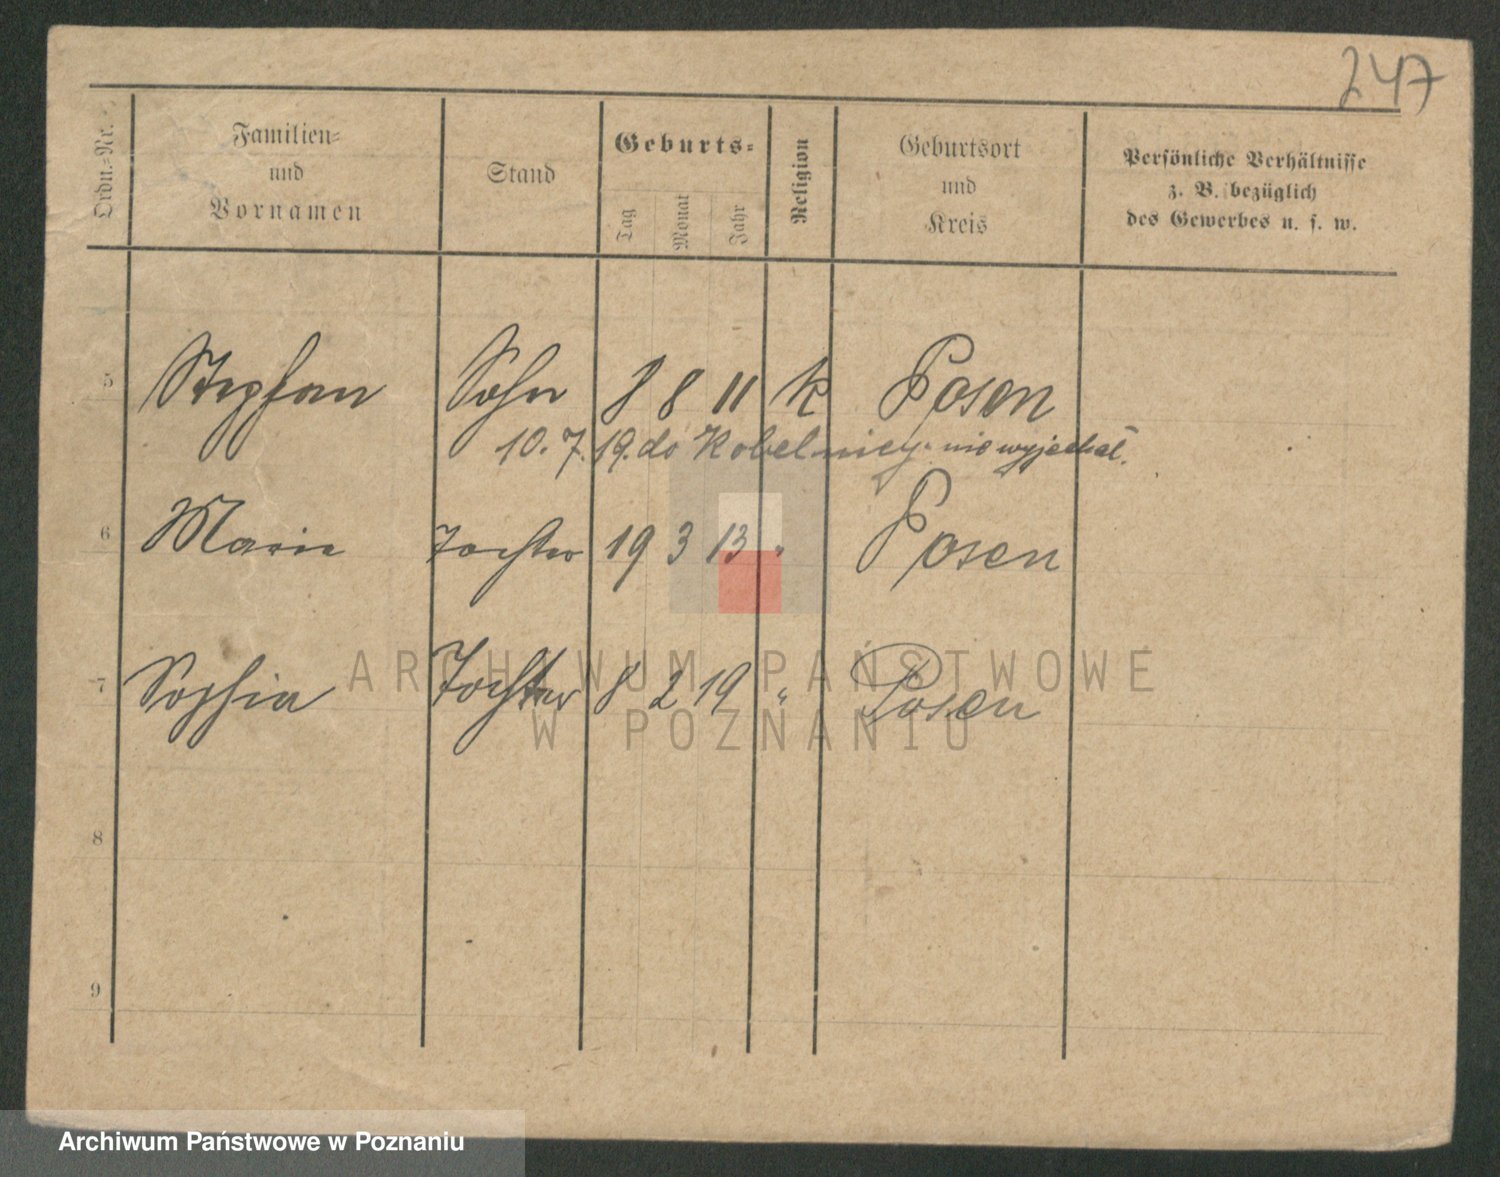 247
Ordn.-Nr.
Familien-
und
Vornamen
Stand
Geburts-
Tag Monat Jahr
Religion
Geburtsort
und
Kreis
Persönliche Verhältnisse
z. B. bezüglich
des Gewerbes u. s. w.
5 Stephan Sohn 8 8 11 K Posen
10. 7. 19. do Kobelnicy. nie wyjechał.
6 Marie Tochter 19 3 13 " Posen
7 Sophia Tochter 8 2 19 " Posen
8
9
ARCHIWUM PAŃSTWOWE
W POZNANIU
Archiwum Państwowe w Poznaniu